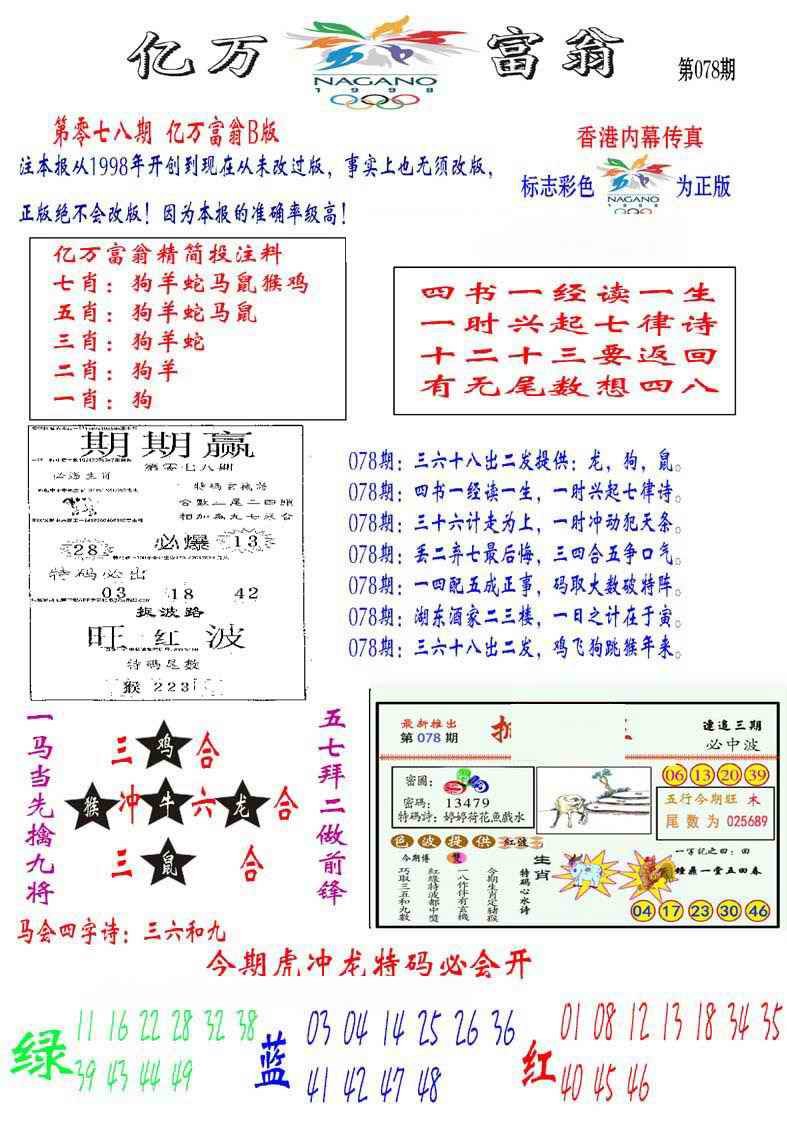 亿万富翁
NAGANO
1998
第078期
第零七八期 亿万富翁B版
注本报从1998年开创到现在从未改过版，事实上也无须改版，
正版绝不会改版！因为本报的准确率级高！
香港内幕传真
标志彩色
NAGANO
1998
为正版
亿万富翁精简投注料
七肖：狗羊蛇马鼠猴鸡
五肖：狗羊蛇马鼠
三肖：狗羊蛇
二肖：狗羊
一肖：狗
四书一经读一生
一时兴起七律诗
十二十三要返回
有无尾数想四八
期期赢
第零七八期
必爆
28
13
特码必出
03 18 42
捉波路
旺红波
特码尾数
猴 223
078期：三六十八出二发提供：龙，狗，鼠。
078期：四书一经读一生，一时兴起七律诗。
078期：三十六计走为上，一时冲动犯天条。
078期：丢二弃七最后悔，三四合五争口气。
078期：一四配五成正事，码取大数破特阵。
078期：湖东酒家二三楼，一日之计在于寅。
078期：三六十八出二发，鸡飞狗跳猴年来。
一马当先擒九将
三 鸡 合
猴 冲 牛 六 龙 合
三 鼠 合
五七拜二做前锋
马会四字诗：三六和九
最新推出
第 078 期
速追三期
必中波
密圖：
密碼： 13479
特碼詩：婷婷荷花魚戲水
06 13 20 39
五行今期旺 木
尾数为 025689
色波提供 红波
今期博 雙
巧取三五和九數
紅綠特波都中獎
一八作伴有玄機
今期生肖定豬猴
特码心水诗
生肖
一字記之曰：回
鐘鼎一堂五回春
04 17 23 30 46
今期虎冲龙特码必会开
绿
11 16 22 28 32 38
39 43 44 49
蓝
03 04 14 25 26 36
41 42 47 48
红
01 08 12 13 18 34 35
40 45 46